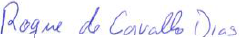 Roque de Carvallo Dias